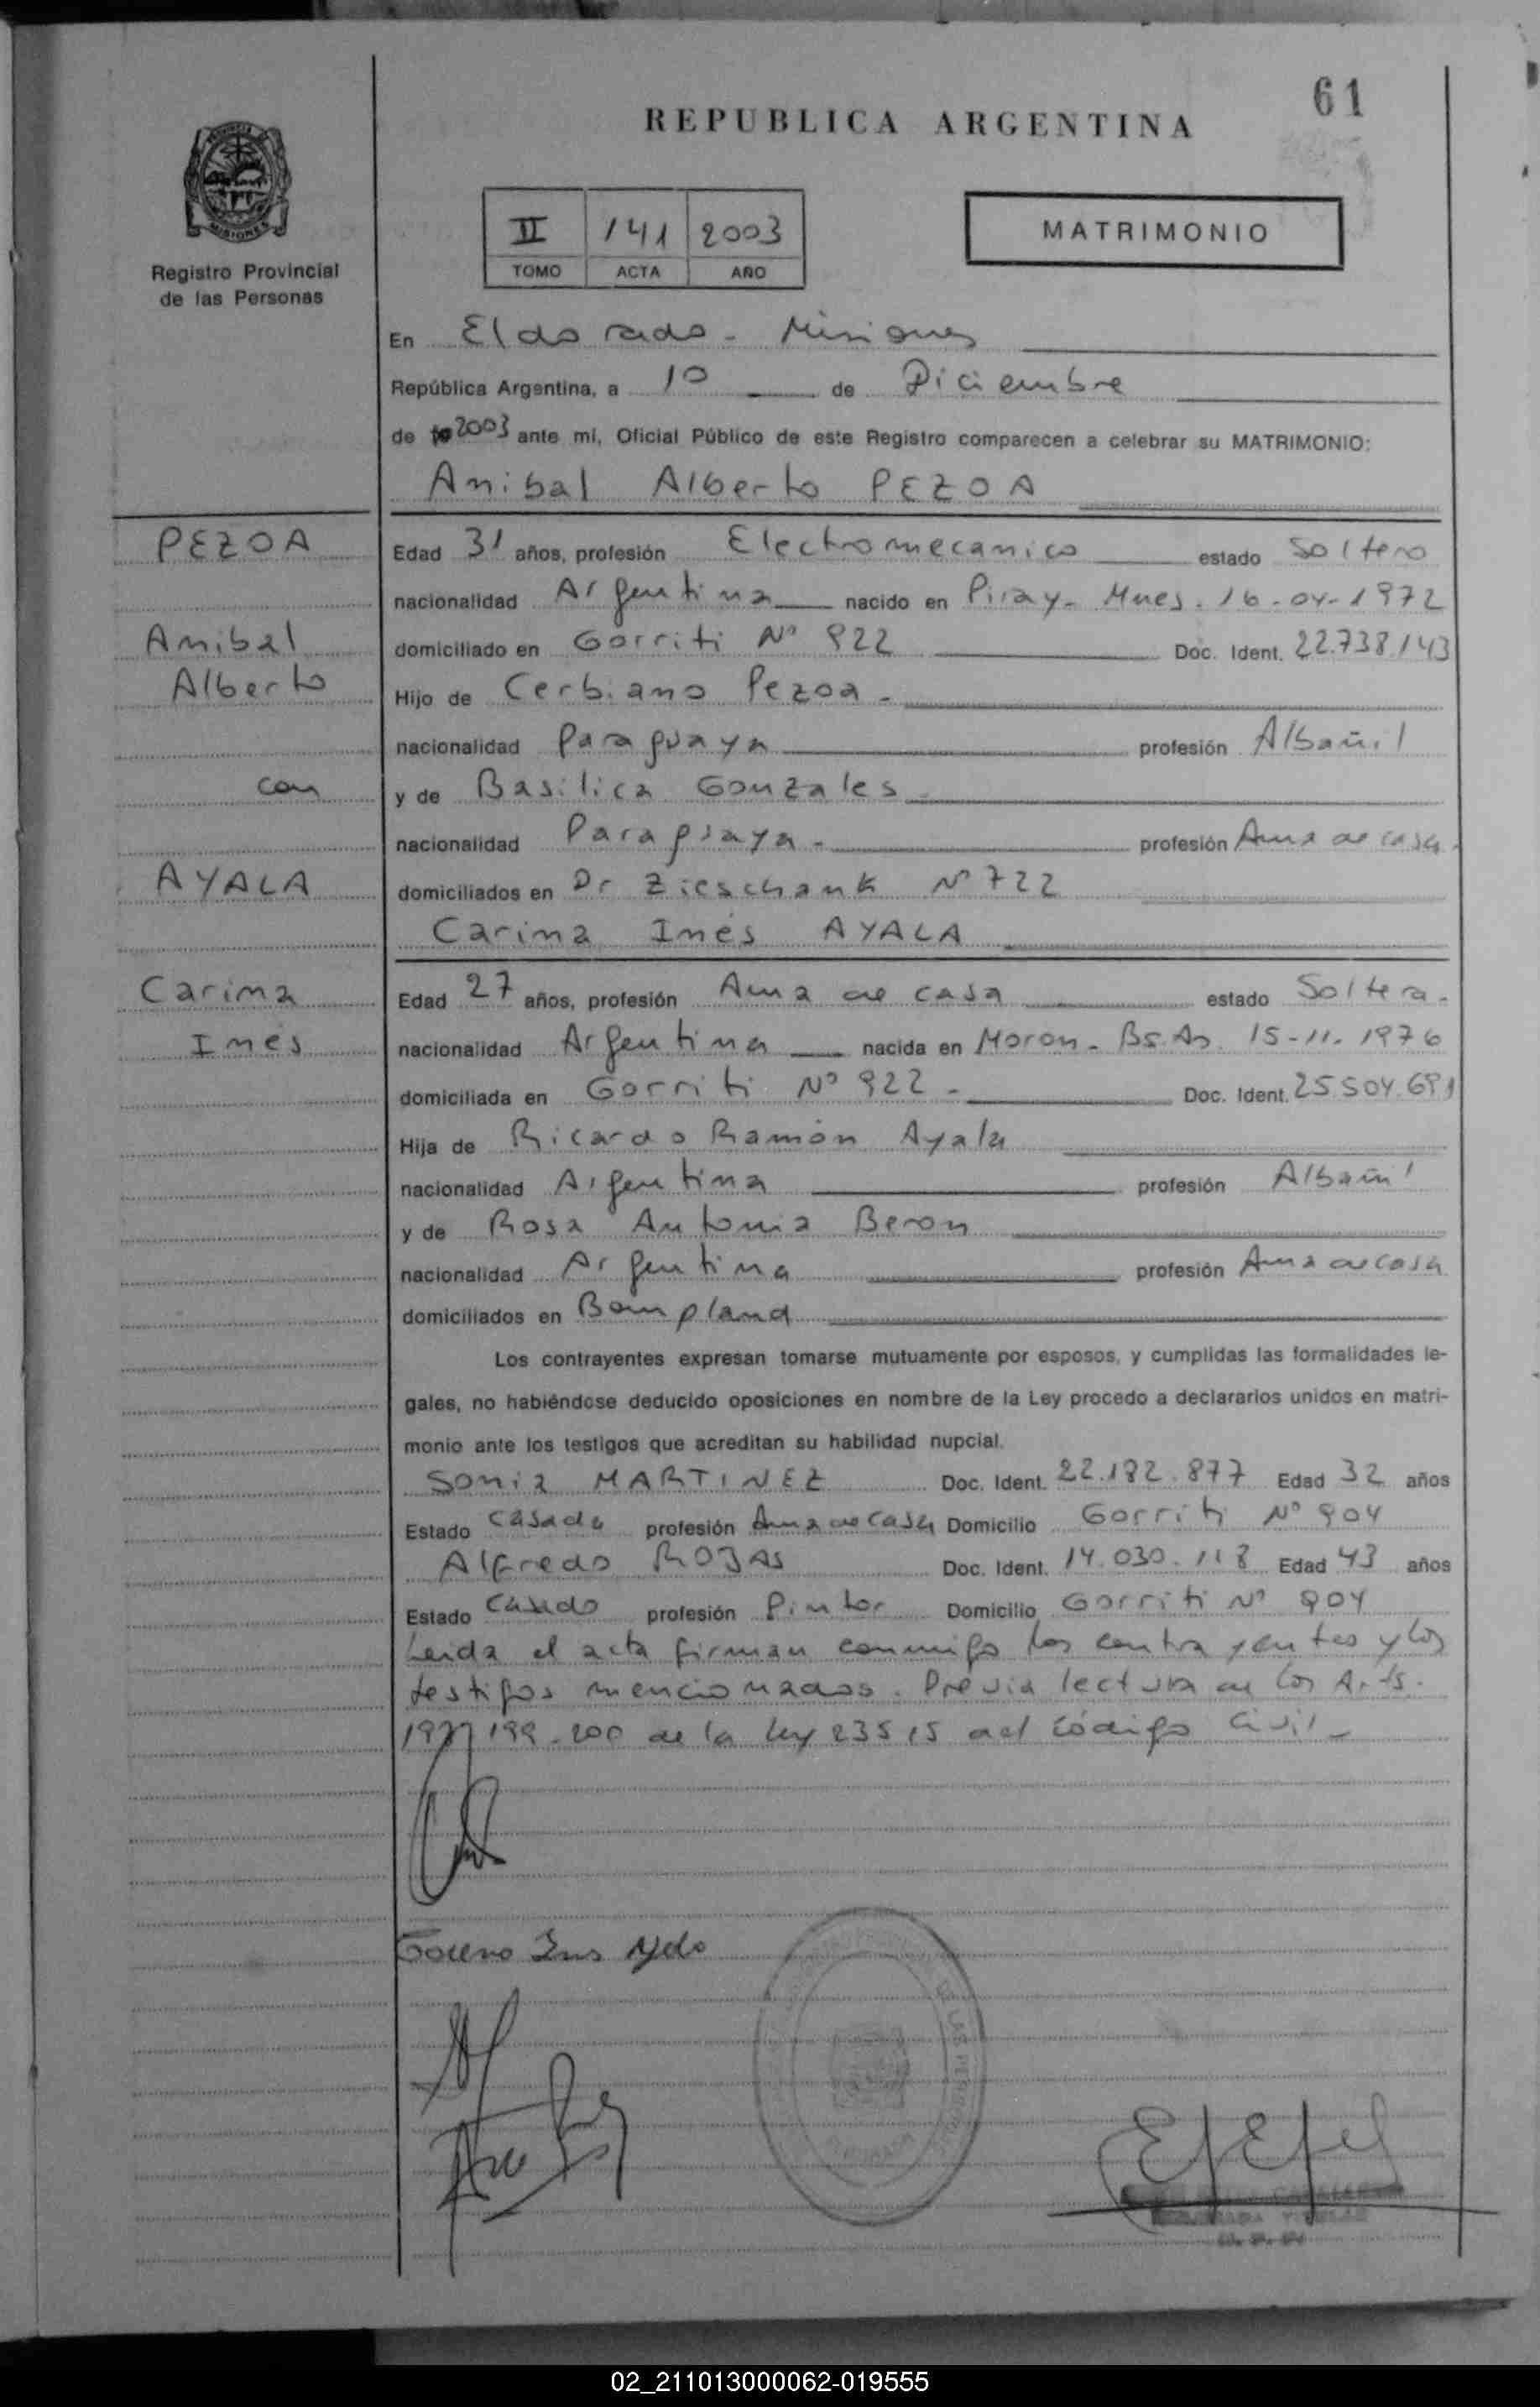 61
REPUBLICA ARGENTINA
MISIONES
Registro Provincial
de las Personas
II 141 2003
TOMO ACTA AÑO
MATRIMONIO
En Eldorado - Misiones
República Argentina, a 10 de Diciembre
de 2003 ante mí, Oficial Público de este Registro comparecen a celebrar su MATRIMONIO:
Anibal Alberto PEZOA
PEZOA
Anibal
Alberto
con
AYALA
Carina
Inés
Edad 31 años, profesión Electromecanico estado Soltero
nacionalidad Argentina nacido en Piray - Mnes. 16-04-1972
domiciliado en Gorriti Nº 922 Doc. Ident. 22.738.143
Hijo de Cerbiano Pezoa -
nacionalidad Paraguaya profesión Albañil
y de Basilica Gonzales
nacionalidad Paraguaya - profesión Ama de casa.
domiciliados en Dr Zieschank Nº 722
Carina Inés AYALA
Edad 27 años, profesión Ama de casa estado Soltera.
nacionalidad Argentina nacida en Moron - Bs. As. 15-11-1976
domiciliada en Gorriti Nº 922 - Doc. Ident. 25.504.691
Hija de Ricardo Ramón Ayala
nacionalidad Argentina profesión Albañil
y de Rosa Antonia Beron
nacionalidad Argentina profesión Ama de casa
domiciliados en Bompland
Los contrayentes expresan tomarse mutuamente por esposos, y cumplidas las formalidades le-
gales, no habiéndose deducido oposiciones en nombre de la Ley procedo a declararlos unidos en matri-
monio ante los testigos que acreditan su habilidad nupcial.
Sonia MARTINEZ Doc. Ident. 22.182.877 Edad 32 años
Estado Casada profesión Ama de casa Domicilio Gorriti Nº 904
Alfredo ROJAS Doc. Ident. 14.030.118 Edad 43 años
Estado Casado profesión Pintor Domicilio Gorriti Nº 904
Leida el acta firman conmigo los contrayentes y los
testigos mencionados. Previa lectura de los Arts.
199-200 de la ley 23515 del código Civil -
02_211013000062-019555